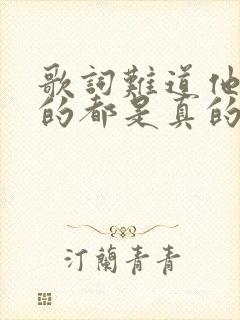 歌詞難道他
的都是真的
汀蘭青青